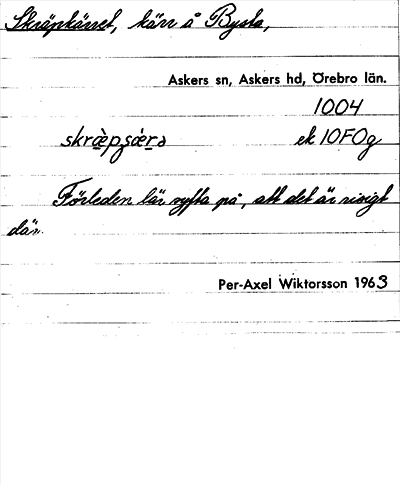 Skräpkärret, kärr å Bysta,
Askers sn, Askers hd, Örebro län.
1004
skræ̀pçǽrə ek 10F0g
Förleden lär syfta på, att det är risigt
där.
Per-Axel Wiktorsson 1963